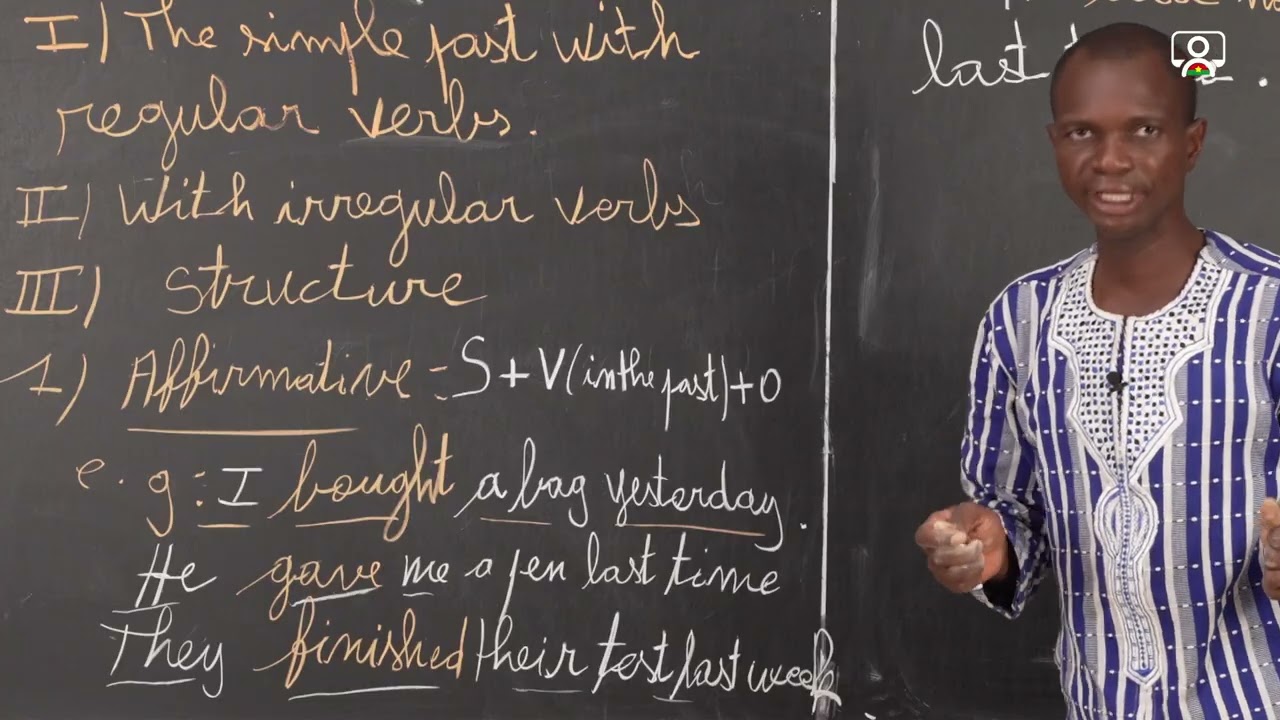 I) The simple past with
regular verbs.
II) With irregular verbs
III) Structure
1) Affirmative = S + V (in the past) + O
e.g: I bought a bag yesterday.
He gave me a pen last time
They finished their test last week
last